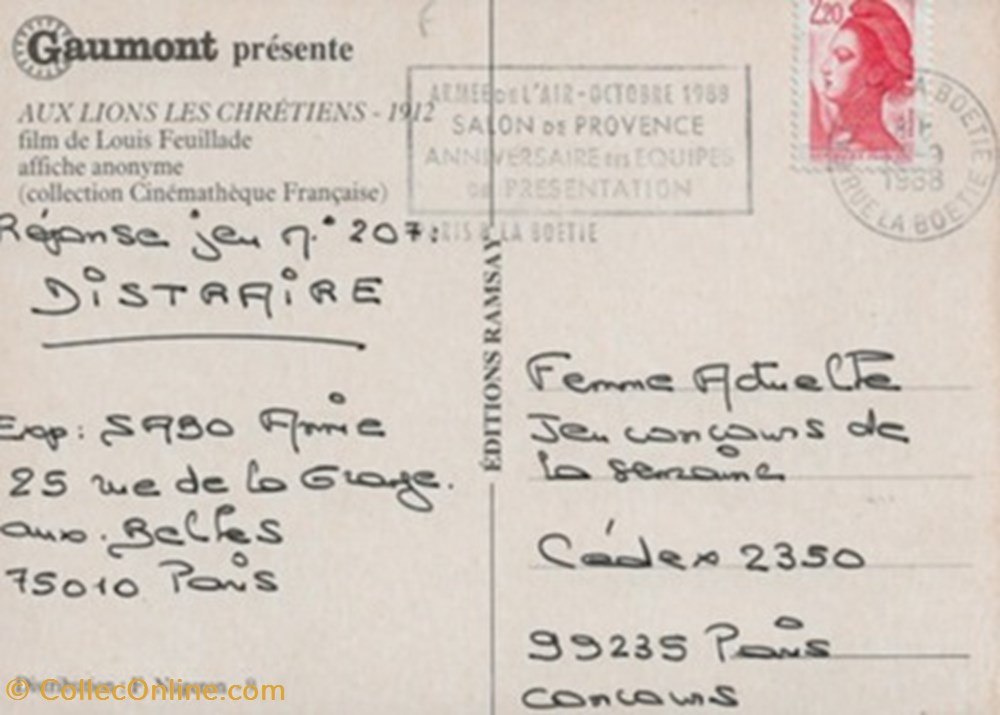 Gaumont présente
AUX LIONS LES CHRÉTIENS - 1912
film de Louis Feuillade
affiche anonyme
(collection Cinémathèque Française)
Réponse jeu n.° 207:
DISTRAIRE
Exp: SABO Annie
25 rue de la Grange.
aux. Belles
75010 Paris
ÉDITIONS RAMSAY
2,20
ARMEE DE L'AIR - OCTOBRE 1988
SALON DE PROVENCE
ANNIVERSAIRE DES EQUIPES
DE PRESENTATION
PARIS 8 LA BOETIE
LA BOETIE
1988
RUE LA BOETIE
Femme Actuelle
Jeu concours de
la semaine
Cédex 2350
99235 Paris
concours
© CollecOnline.com